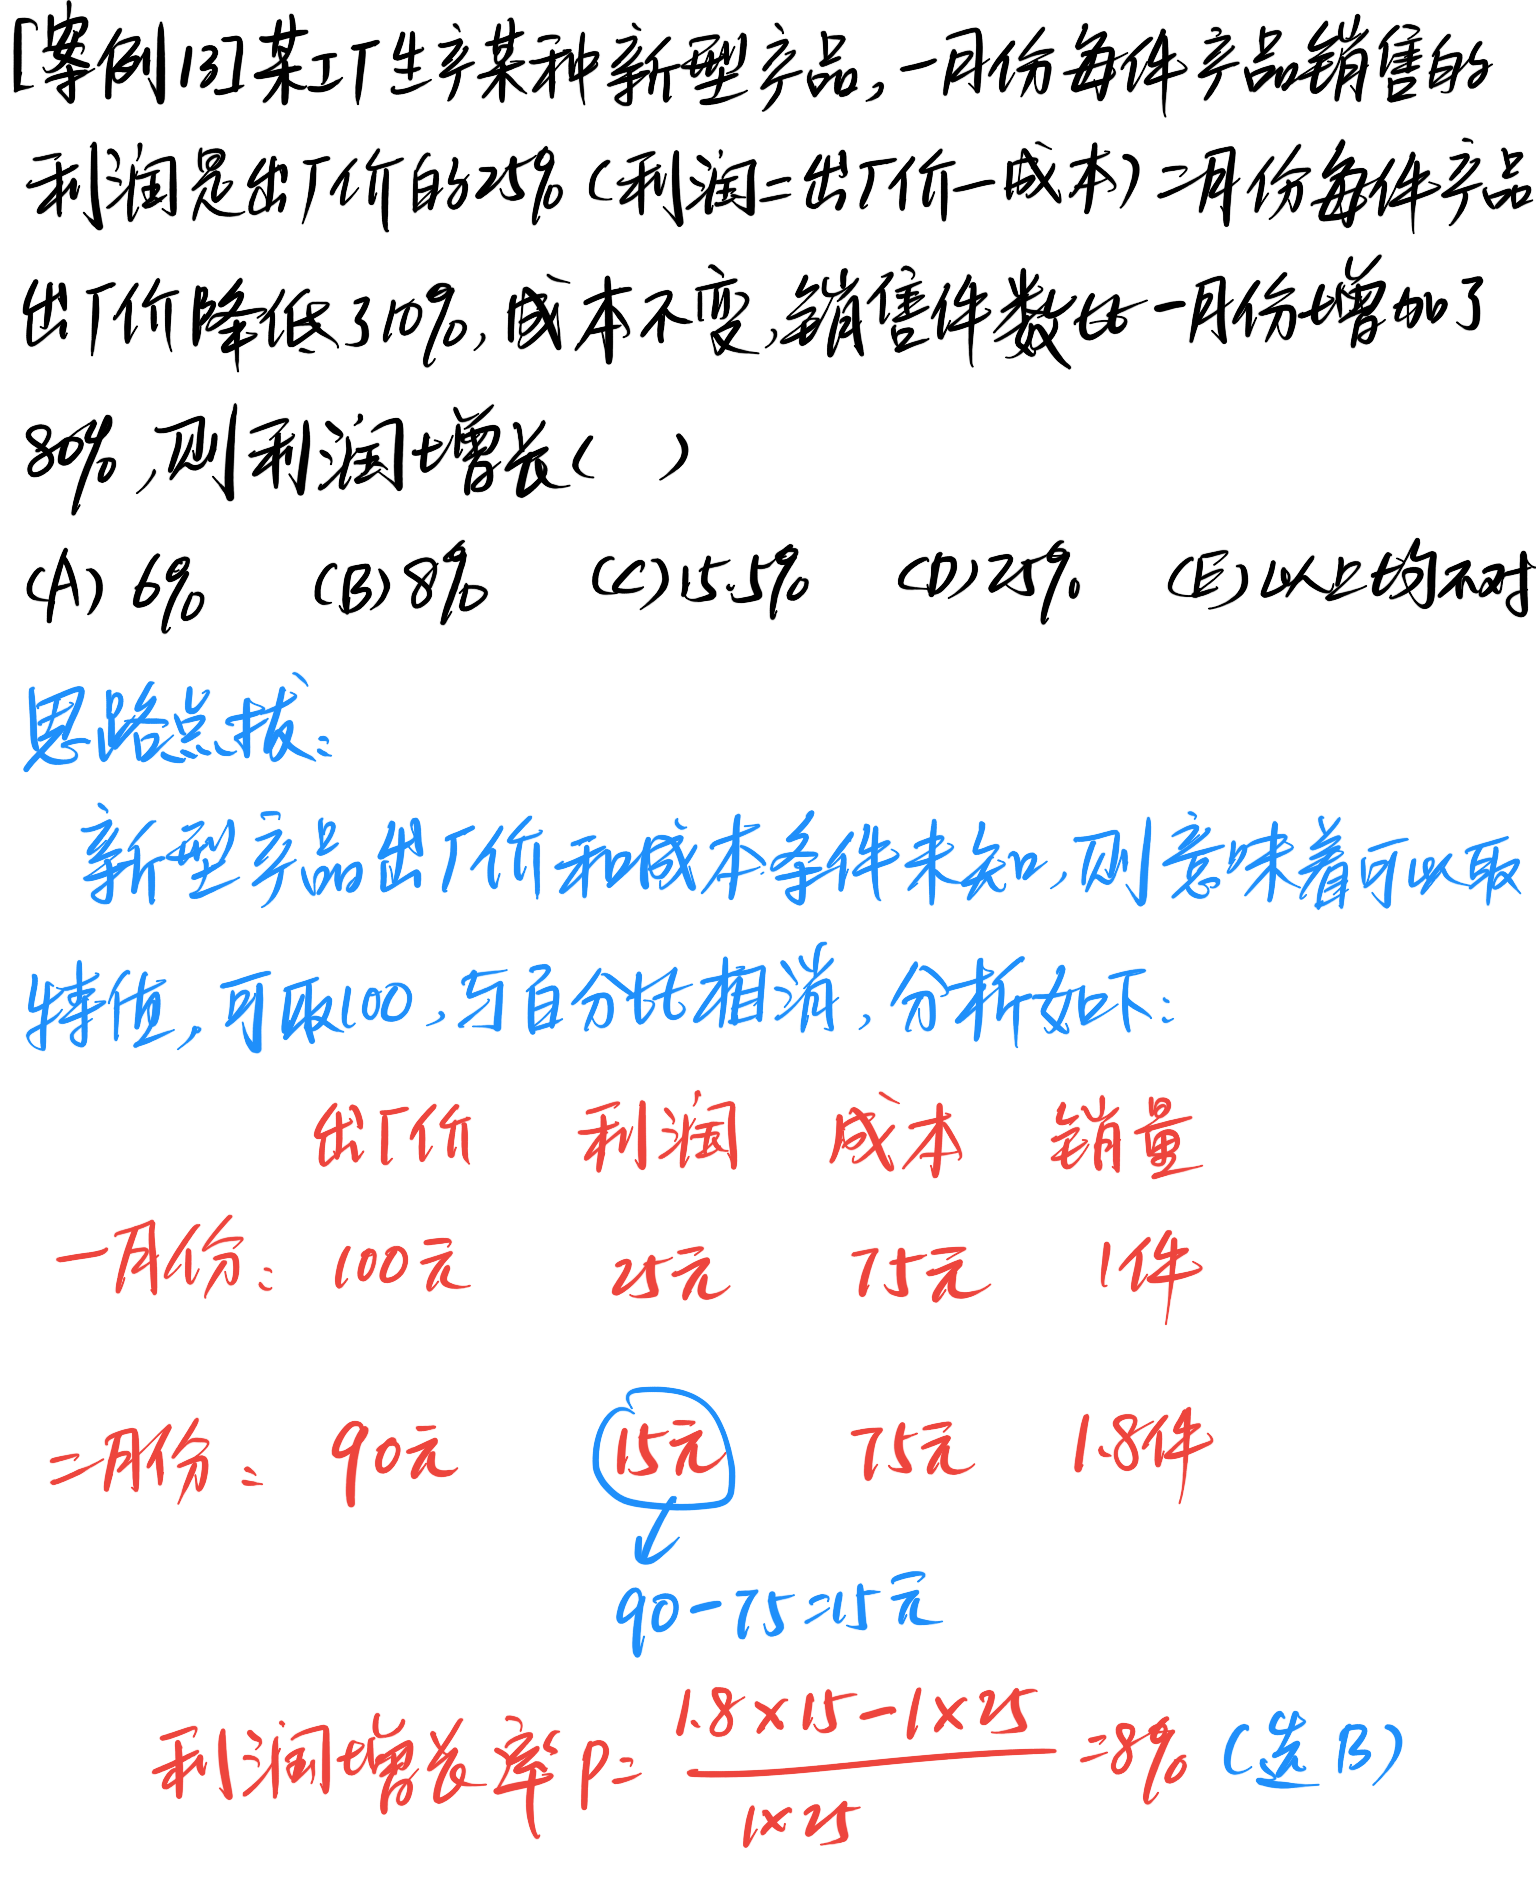 [案例13]某工厂生产某种新型产品,一月份每件产品销售的
利润是出厂价的25%(利润=出厂价-成本)二月份每件产品
出厂价降低了10%,成本不变,销售件数比一月份增加了
80%,则利润增长( )
(A) 6% (B) 8% (C) 15.5% (D) 25% (E) 以上均不对
思路点拨:
新型产品出厂价和成本条件未知,则意味着可以取
特值,可取100,与百分比相消,分析如下:
出厂价 利润 成本 销量
一月份: 100元 25元 75元 1件
二月份: 90元 15元 75元 1.8件
90-75=15元
利润增长率 P= (1.8×15-1×25)/(1×25) =8% (选B)